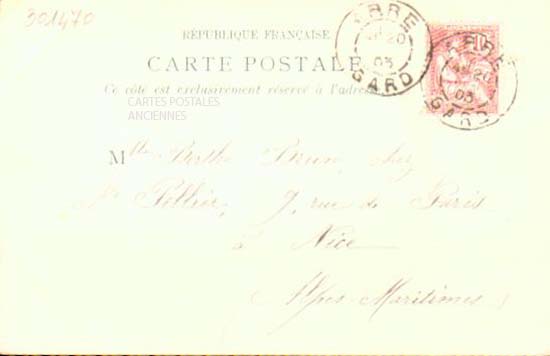 301470
RÉPUBLIQUE FRANÇAISE
CARTE POSTALE
Ce côté est exclusivement réservé à l'adresse
CARTES POSTALES
ANCIENNES
Mlle Berthe Brun, chez
Mr Pellier, 7, rue de Paris
à Nice
(Alpes-Maritimes)
20
03
GARD
20
03
GARD